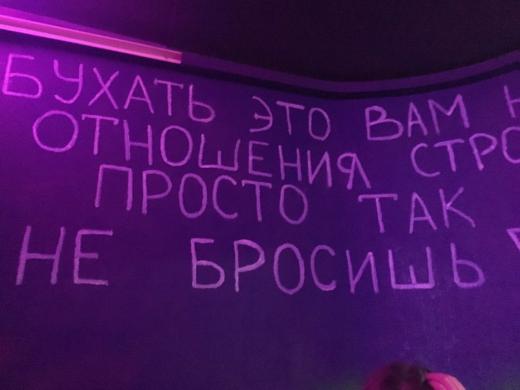 БУХАТЬ ЭТО ВАМ
ОТНОШЕНИЯ
ПРОСТО ТАК
НЕ БРОСИШЬ